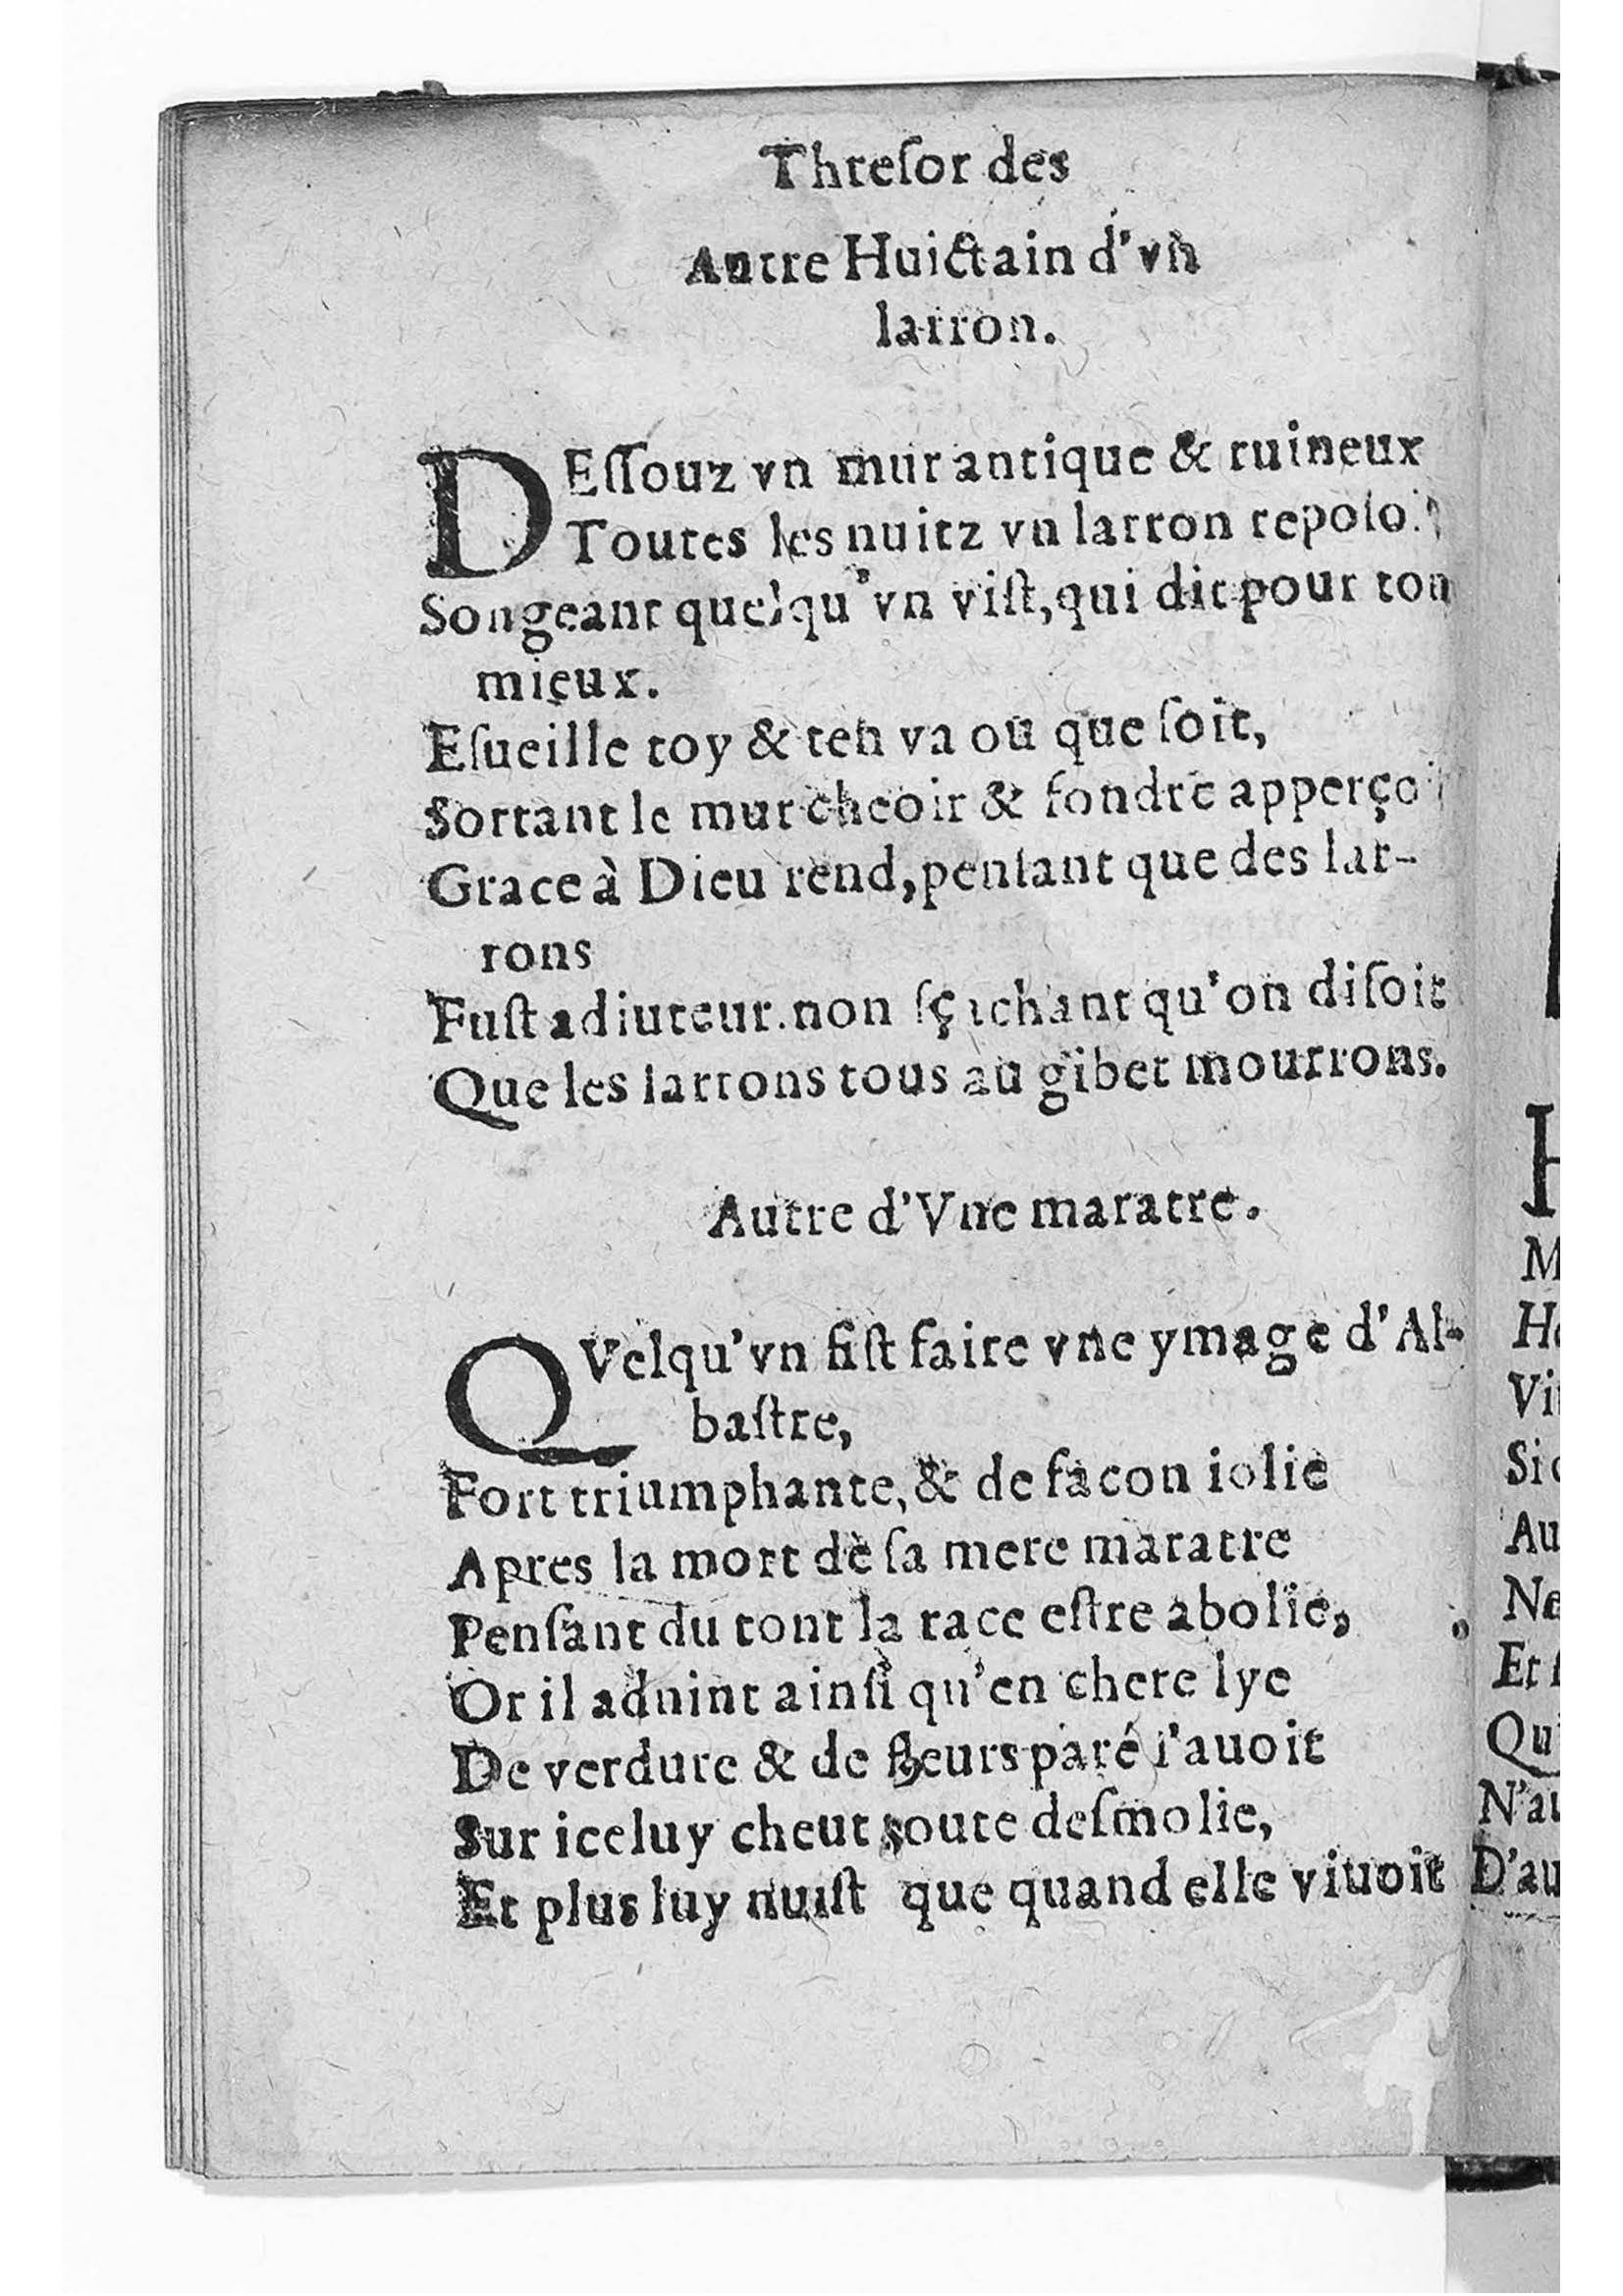 Threſor des
Autre Huictain d'vn
larron.
DEſſouz vn mur antique & ruineux
Toutes les nuitz vn larron
Songeant quelqu'vn viſt, qui dit pour ton
mieux.
Eſueille toy & ten va ou que ſoit,
Sortant le mur cheoir & fondre
Grace à Dieu rend, penſant que des lar-
rons
Fuſt adiuteur. non ſçachant qu'on diſoit
Que les larrons tous au gibet mourrons.
Autre d'Vne maratre.
QVelqu'vn fiſt faire vne ymage d'Al-
baſtre,
Fort triumphante, & de facon iolie
Apres la mort de ſa mere maratre
Penſant du tont la race eſtre abolie,
Or il aduint ainſi qu'en chere lye
De verdure & de fleurs paré l'auoit
Sur iceluy cheut toute deſmolie,
Et plus luy nuiſt que quand elle viuoit
H
M
Ho
Vi
Si
Au
Ne
Et
Qu'
N'au
D'au